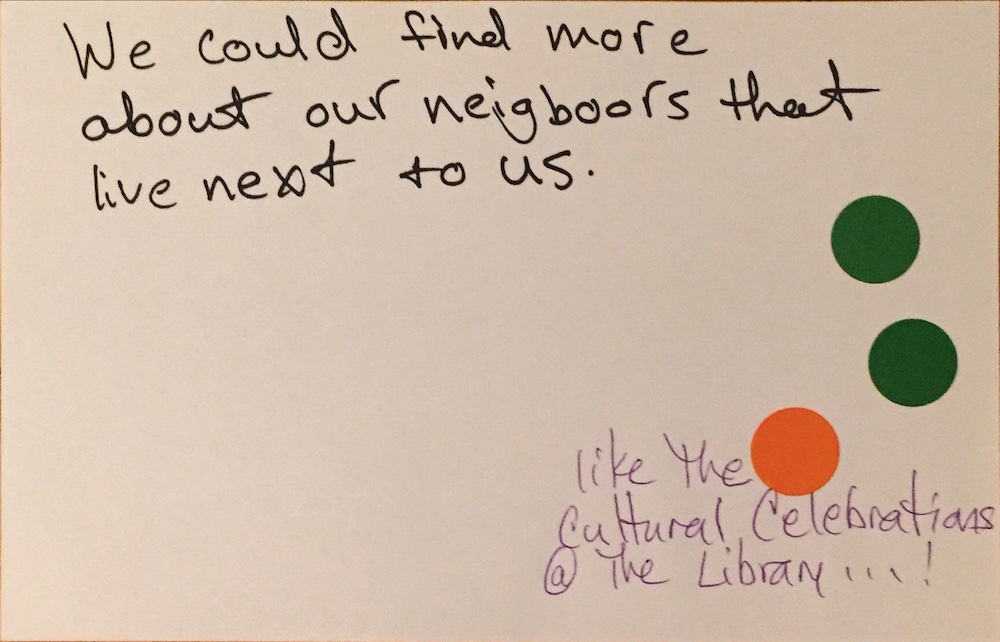 We could find more
about our neigboors that
live next to us.
like the
Cultural Celebrations
@ The Library ...!